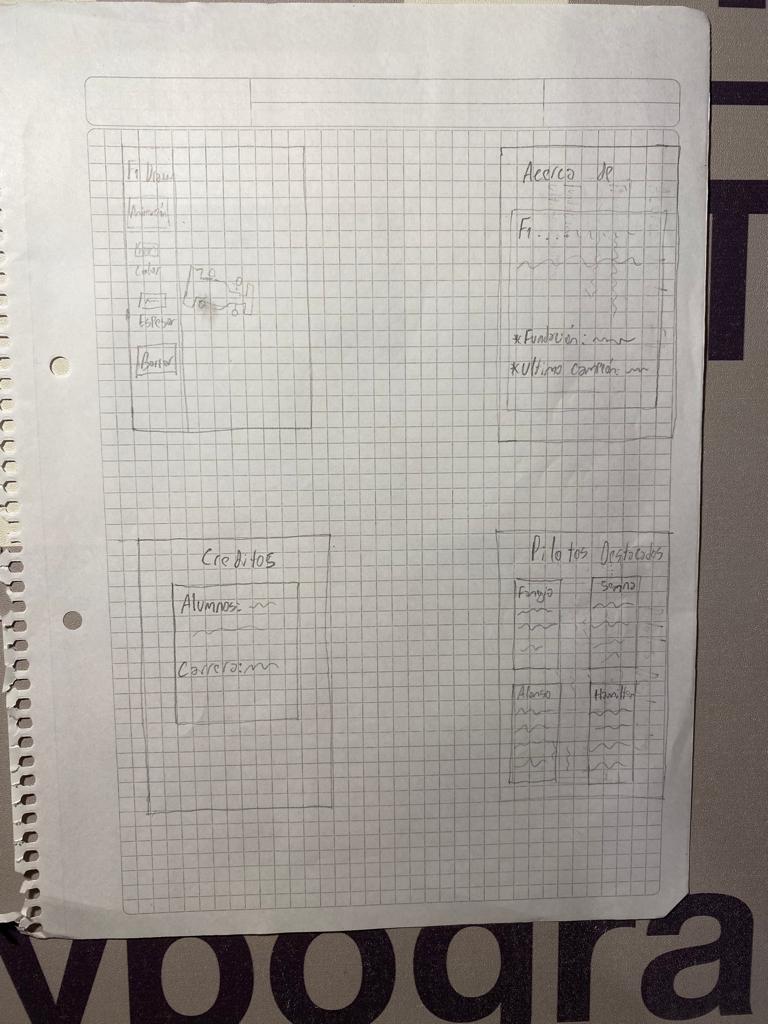 F1 Draw
Animación
Color
Espesor
Borrar
Acerca de
F1...
*Fundación:
*Ultimo campión:
Creditos
Alumnos:
Carrera:
Pilotos Destacados
Fangio
Senna
Alonso
Hamilton
ypogra